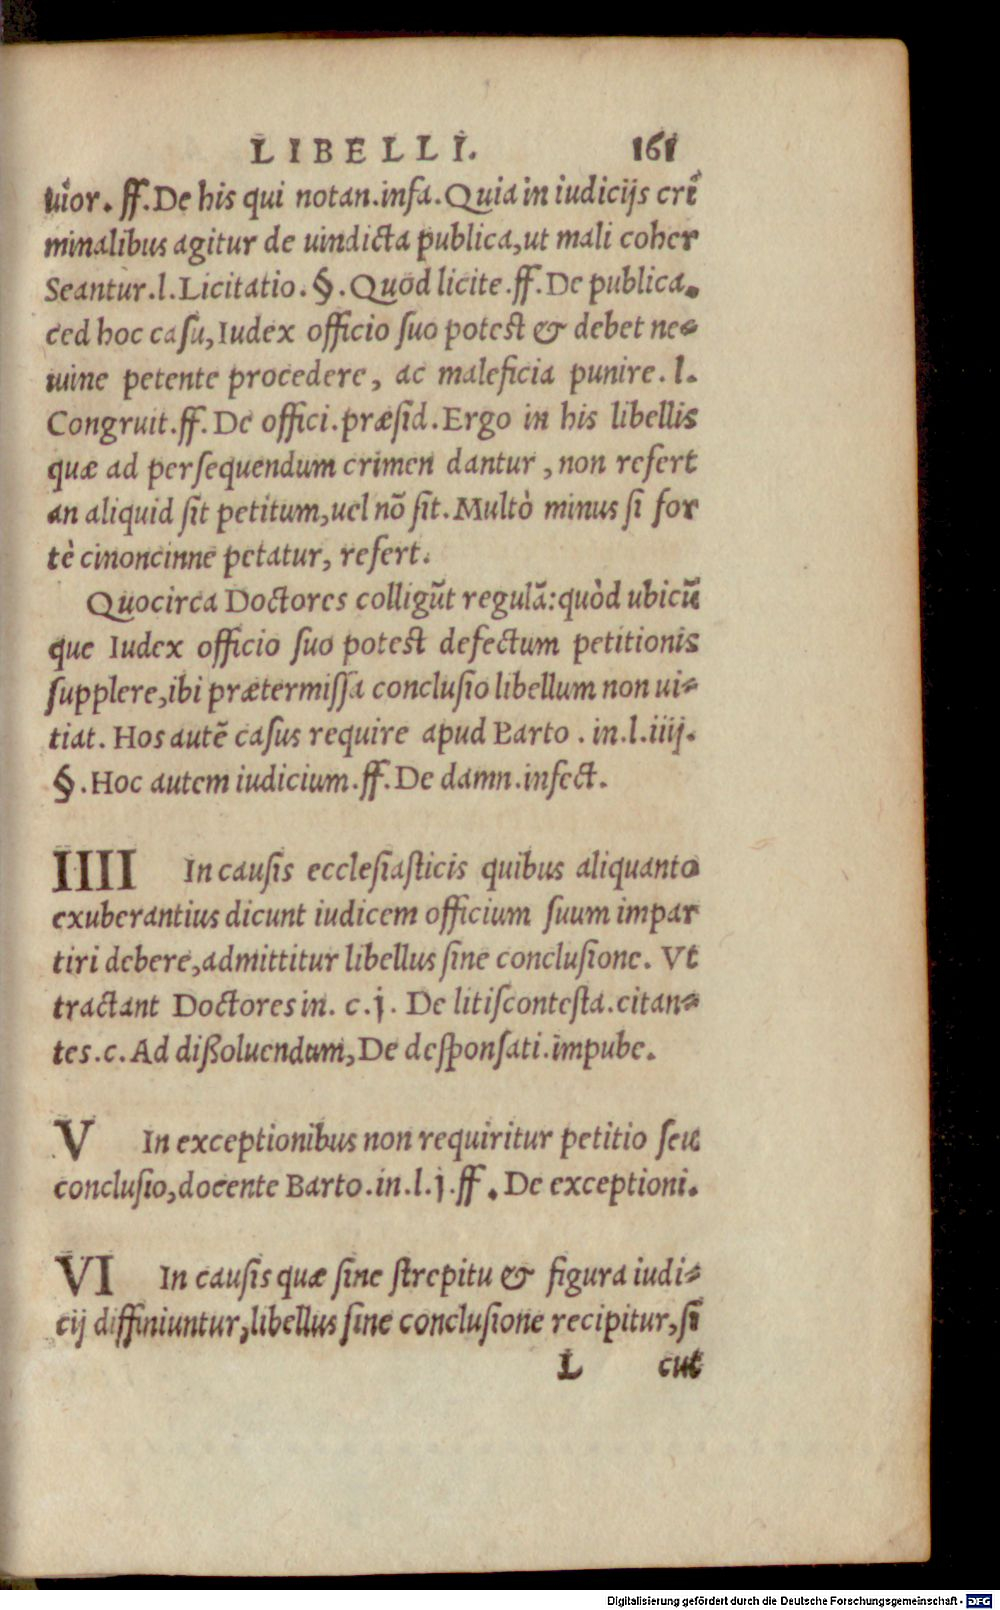 LIBELLI. 161
uior. ff. De his qui notan. infa. Quia in iudicijs crī
minalibus agitur de uindicta publica, ut mali coher
Seantur. l. Licitatio. §. Quod licite. ff. De publica.
ced hoc casu, Iudex officio suo potest & debet ne-
mine petente procedere, ac maleficia punire. l.
Congruit. ff. De offici. præsid. Ergo in his libellis
quæ ad persequendum crimen dantur, non refert
an aliquid sit petitum, uel nō sit. Multò minus si for
tè cinoncinne petatur, refert.
Quocirca Doctores colligūt regulā: quòd ubicū
que Iudex officio suo potest defectum petitionis
supplere, ibi prætermissa conclusio libellum non ui-
tiat. Hos autē casus require apud Barto. in. l. iiij.
§. Hoc autem iudicium. ff. De damn. infect.
IIII In causis ecclesiasticis quibus aliquanto
exuberantius dicunt iudicem officium suum impar
tiri debere, admittitur libellus sine conclusione. Vt
tractant Doctores in. c. j. De litiscontesta. citan-
tes. c. Ad dißoluendum, De desponsati. impube.
V In exceptionibus non requiritur petitio seu
conclusio, docente Barto. in. l. j. ff. De exceptioni.
VI In causis quæ sine strepitu & figura iudi-
cij diffiniuntur, libellus sine conclusione recipitur, si
L cut
Digitalisierung gefördert durch die Deutsche Forschungsgemeinschaft - DFG